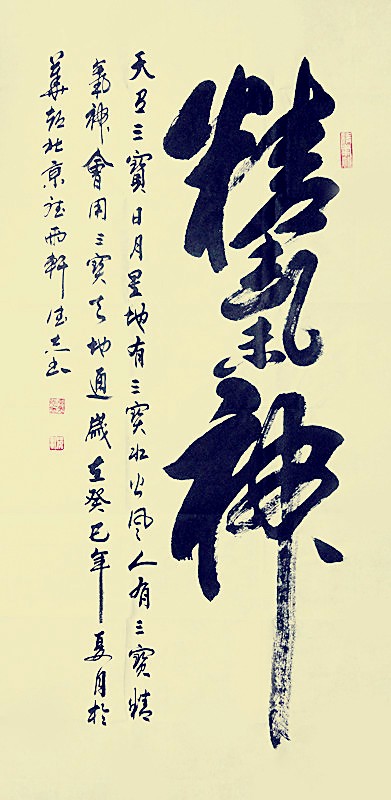 精氣神
天有三寶日月星地有三寶水火風人有三寶精
氣神會用三寶天地通歲在癸巳年夏月於
華都北京聽雨軒